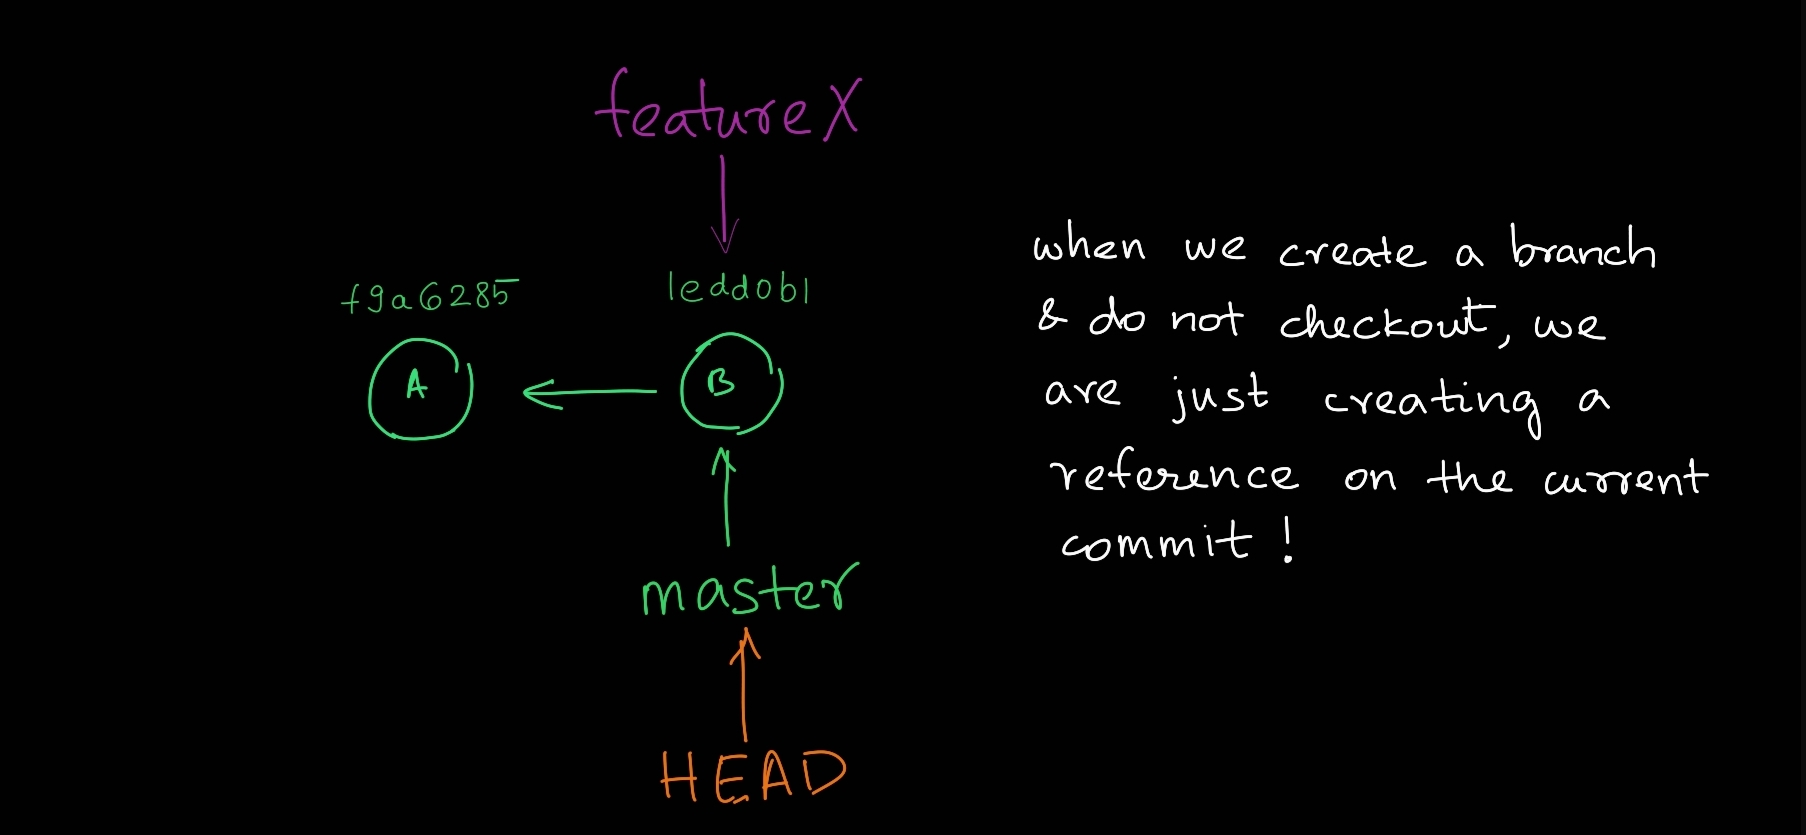 featureX
f9a6285
1eddob1
A
B
master
HEAD
when we create a branch
& do not checkout, we
are just creating a
reference on the current
commit!